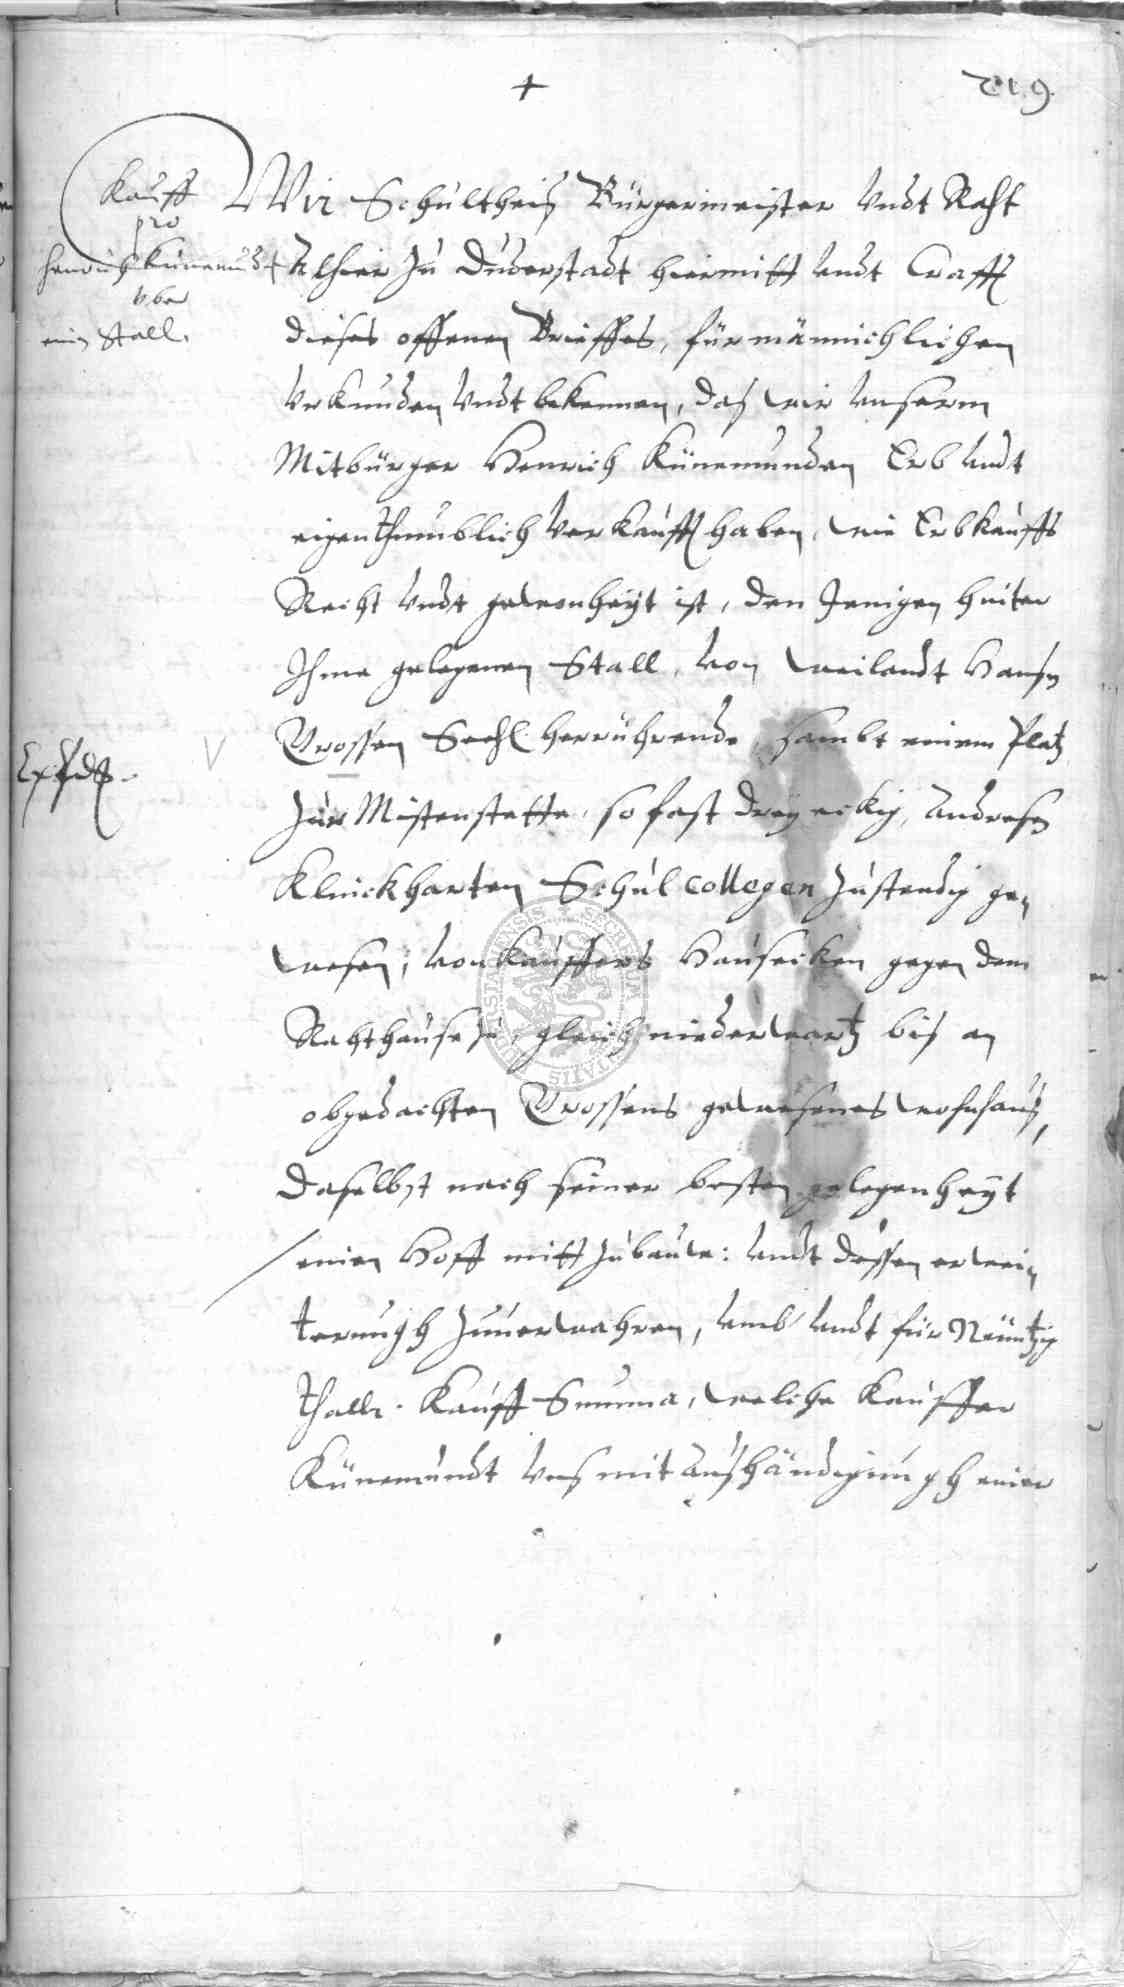 219.
Kauff
pro
Henrich Künemundt
vber
ein Stall.
Wir Schultheiß Bürgermeister vndt Raht
Alhier zu Duderstadt hiermitt vndt Crafft
dieses offenen Brieffes, für männichlichen
Vrkunden vndt bekennen, daß wir vnserm
Mitbürger Henrich Künemunden Erb vndt
eigenthumblich verkaufft haben, wie Erbkauffs
Recht vndt gewonheyt ist, den Jenigen hinter
Ihme gelegenen Stall, von weilandt Hansen
Crossen Seehl. herrührende, sambt einem Platz
Zur Mistenstette, so fast dreyeckig, Andresen
Klinckharten Schulcollegen zustendig ge-
wesen, von Kauffers Hausecken gegen dem
Rahthause zu, gleich niederwartz biß an
obgedachten Crossens gewesenes wohnhauß,
daselbst nach seiner besten gelegenheyt
einen Hoff mitt zubauwe: vndt dessen erwei-
terungh zuuerwahren, vmb vndt für Neuntzig
Thallr. Kauff Summa, welche Kauffer
Künemundt vns mit Aushändigungh einer